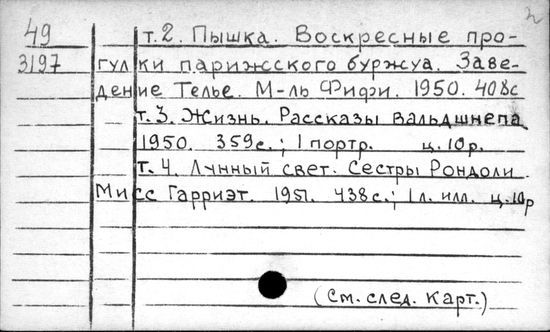 2
49 т.2. Пышка. Воскресные про-
3197 гулки парижского буржуа. Заве-
дение Телье. М-ль Фифи. 1950. 408с
т.3. Жизнь. Рассказы вальдшнепа
1950. 359с.; 1 портр. ц.10р.
т.4. Лунный свет. Сестры Рондоли.
Мисс Гарриэт. 1951. 438с.; 1л. илл. ц.10р
(См. след. карт.)